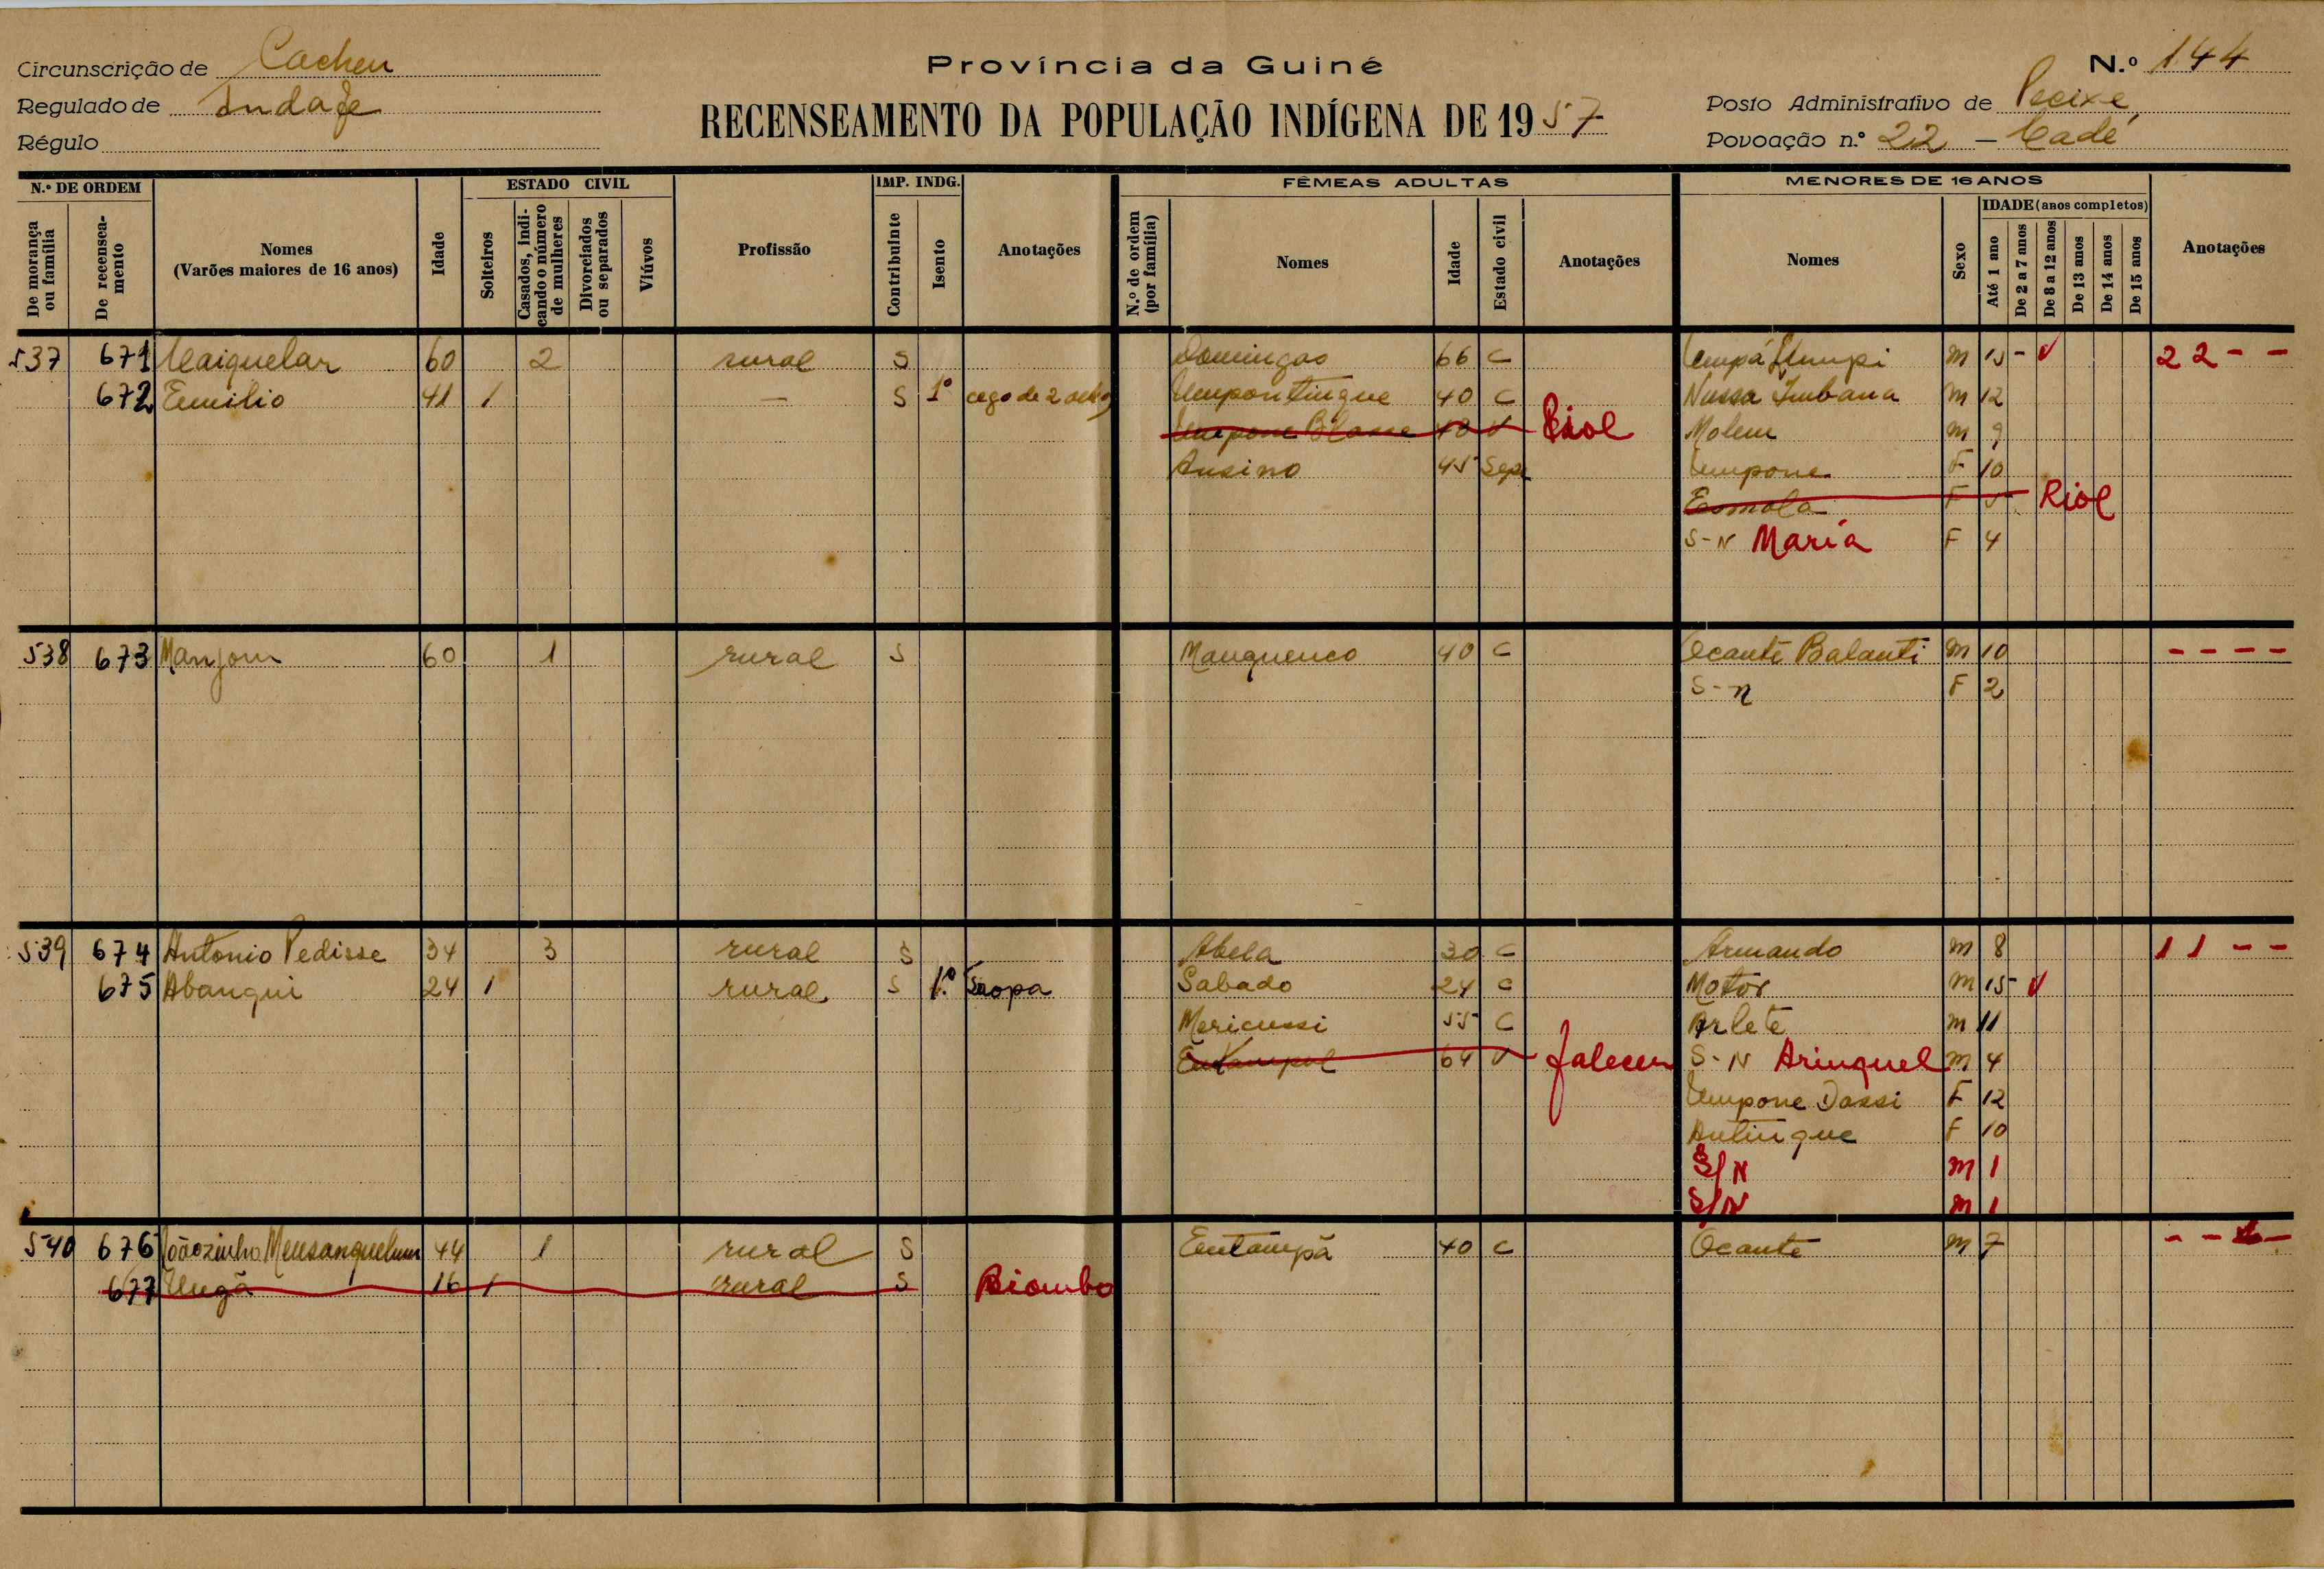 Circunscrição de Cacheu
Regulado de Indafe
Régulo
Província da Guiné
RECENSEAMENTO DA POPULAÇÃO INDÍGENA DE 1957
N.º 144
Posto Administrativo de Pecixe
Povoação n.º 22 - Cadé
N.º DE ORDEM
De morança ou família
De recenseamento
Nomes
(Varões maiores de 16 anos)
Idade
ESTADO CIVIL
Solteiros
Casados, indicando o número de mulheres
Divorciados ou separados
Viúvos
Profissão
IMP. INDG.
Contribuinte
Isento
Anotações
FÊMEAS ADULTAS
N.º de ordem (por família)
Nomes
Idade
Estado civil
Anotações
MENORES DE 16 ANOS
Nomes
Sexo
IDADE (anos completos)
Até 1 ano
De 2 a 7 anos
De 8 a 12 anos
De 13 anos
De 14 anos
De 15 anos
Anotações
537 671 Uaiquelar 60 2 rural S Domingas 66 C Umpá M 15 - v 2 2 - -
672 Emilio 41 1 — S 1º cego de 2 Umpontingue 40 C Nussa Imbana M 12
Umpone Blasse 48 V Riol Molem M 9
Ansino 45 Sep Umpone F 10
Esmola F 5 Riol
S-N Maria F 4
538 673 Manjom 60 1 rural S Manguenco 40 C Ocante Balanti M 10 - - - -
S-n F 2
539 674 Antonio Pedisse 34 3 rural S Abela 30 C Armando M 8 1 1 - -
675 Abangui 24 1 rural S 1.º Sabado 24 C Motor M 15 - v
Mericussi 55 C Arlete M 11
64 V faleceu S-N Aringuel M 4
Umpone Dassi F 12
Antingue F 10
S/N M 1
S/N M 1
540 676 Joãozinho Mensanquelum 44 1 rural S Entampã 40 C Ocante M 7 - -
677 Ungã 16 1 rural S Biombo